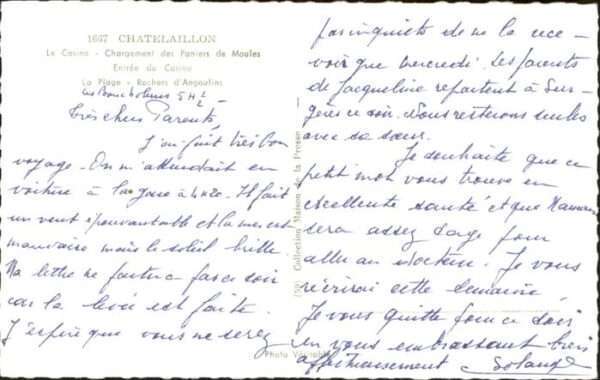 1667 CHATELAILLON
Le Casino - Chargement des Paniers de Moules
Entrée du Casino
La Plage - Rochers d'Angoulins
5H ½
Très chers Parents,
J'ai fait très bon
voyage. On m'attendait en
voiture à la gare à 4h20. Il fait
un vent épouvantable et la mer est
mauvaise mais le soleil brille
Ma lettre ne partira pas ce soir
car la levée est faite.
J'espère que vous ne serez
pas inquiets de ne la rece-
voir que mercredi. Les parents
de Jacqueline repartent à Sur-
gères ce soir. Nous resterons seules
avec sa sœur.
Je souhaite que ce
petit mot vous trouve en
excellente santé et que Maman
sera assez sage pour
aller au docteur. Je vous
réécrirai cette semaine,
Je vous quitte pour ce soir
en vous embrassant bien
affectueusement Solange
Collection Maison de la Presse
Photo